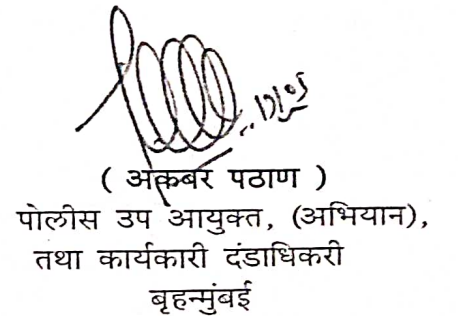 ( अकबर पठाण )
पोलीस उप आयुक्त, (अभियान),
तथा कार्यकारी दंडाधिकरी
बृहन्मुंबई